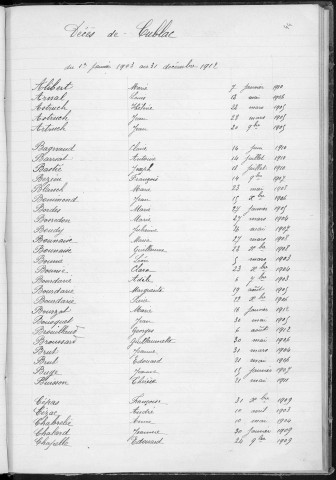 Décès de Cublac
du 1er janvier 1903 au 31 décembre 1912
Alibert Marie 7 janvier 1910
Arnal Louis 13 mai 1908
Astruch Hélène 22 mars 1905
Astruch Jean 23 mars 1905
Astruch Jean 20 9bre 1905
Bagnaud 14 juin 1910
Barrat Antoine 14 juillet 1910
Joseph 12 juillet 1910
François 19 9bre 1907
Blanch Marie 23 mai 1903
Jean 15 Xbre 1906
Bordes Marie 25 janvier 1905
Bourdon Marie 27 mars 1904
Boudy 16 mai 1907
Bounaix 27 mars 1908
Bounaix Guillaume 22 Xbre 1908
5 mars 1903
Clara 23 Xbre 1904
Bourdarie Adèle 9bre 1903
Bourdarie Marguerite 19 août 1905
Bourdarie 19 Xbre 1906
Bourzat Marie 16 janvier 1912
Bousquet Jean mai 1905
Brouillet Georges 6 août 1912
Broussard Guillaumette 30 mai 1906
Brut Jeanne 31 mars 1904
Brut Edouard 21 mai 1906
Buge Jeanne 15 janvier 1909
Buisson Thérèse 21 mai 1911
Cépas Françoise 31 Xbre 1909
Cézac André 10 avril 1903
Chabrelie 10 mai 1904
Chalard Jeanne 30 janvier 1909
Chapelle Edouard 26 9bre 1909